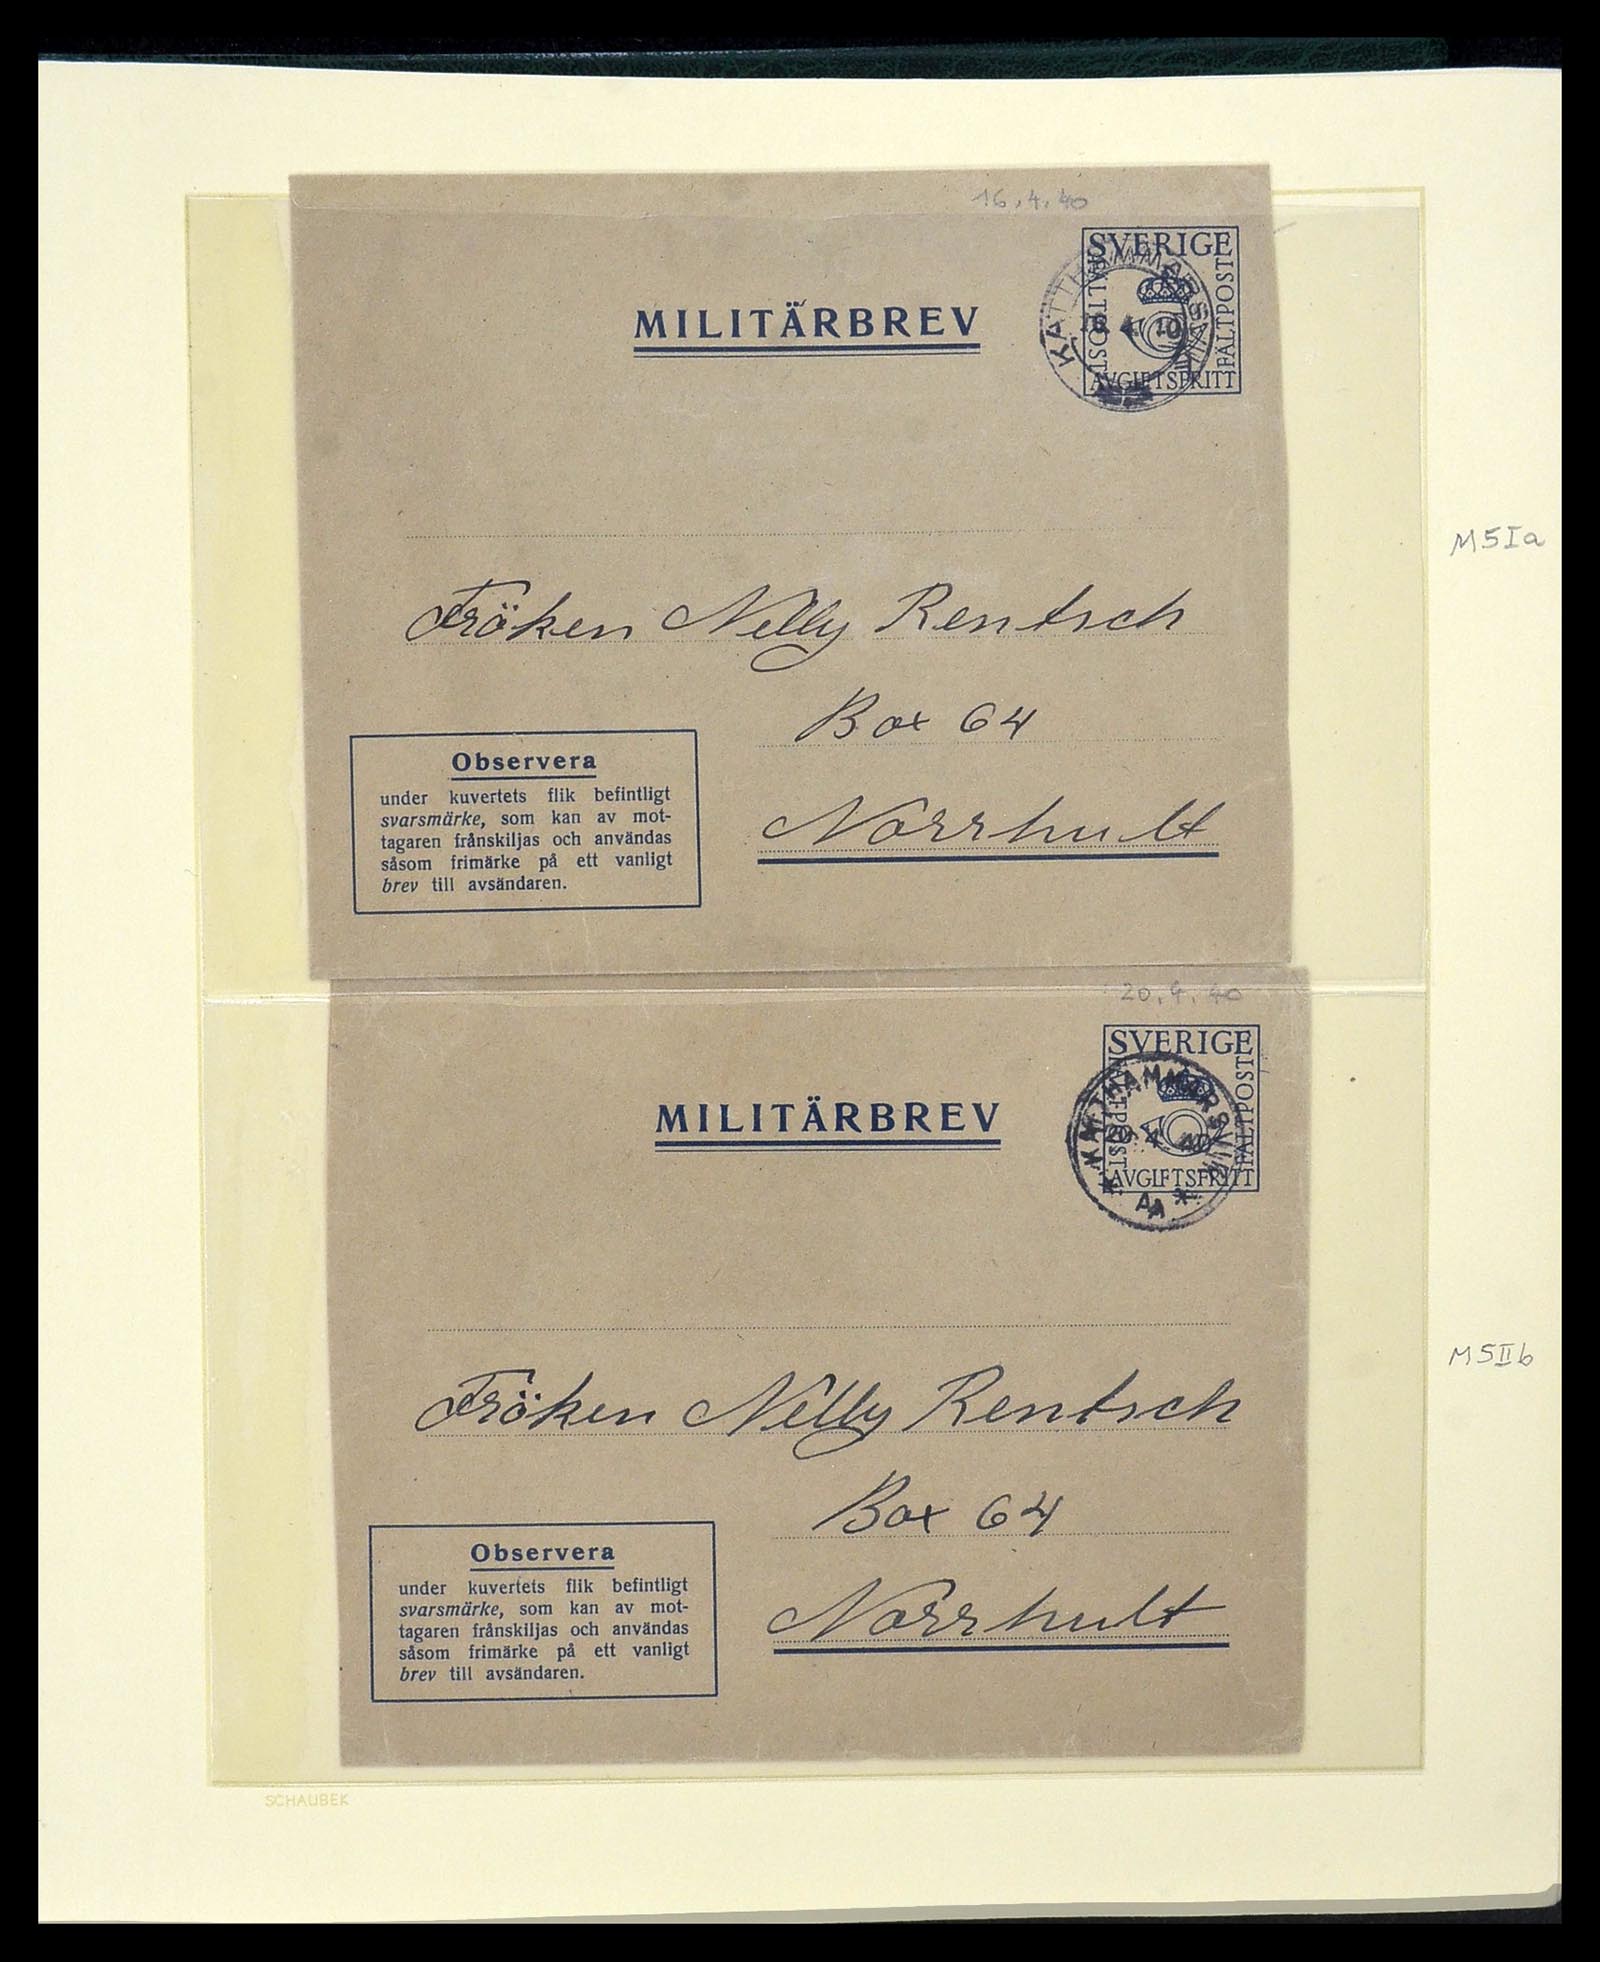 16.4.40
SVERIGE
FÄLTPOST
FÄLTPOST
AVGIFTSFRITT
KATTHAMMARSVIK
MILITÄRBREV
Fröken Nelly Rentsch
Box 64
Norrhult
Observera
under kuvertets flik befintligt
svarsmärke, som kan av mot-
tagaren frånskiljas och användas
såsom frimärke på ett vanligt
brev till avsändaren.
M5Ia
20.4.40
SVERIGE
FÄLTPOST
FÄLTPOST
AVGIFTSFRITT
KATTHAMMARSVIK
20.4.40
MILITÄRBREV
Fröken Nelly Rentsch
Box 64
Norrhult
Observera
under kuvertets flik befintligt
svarsmärke, som kan av mot-
tagaren frånskiljas och användas
såsom frimärke på ett vanligt
brev till avsändaren.
M5IIb
SCHAUBEK